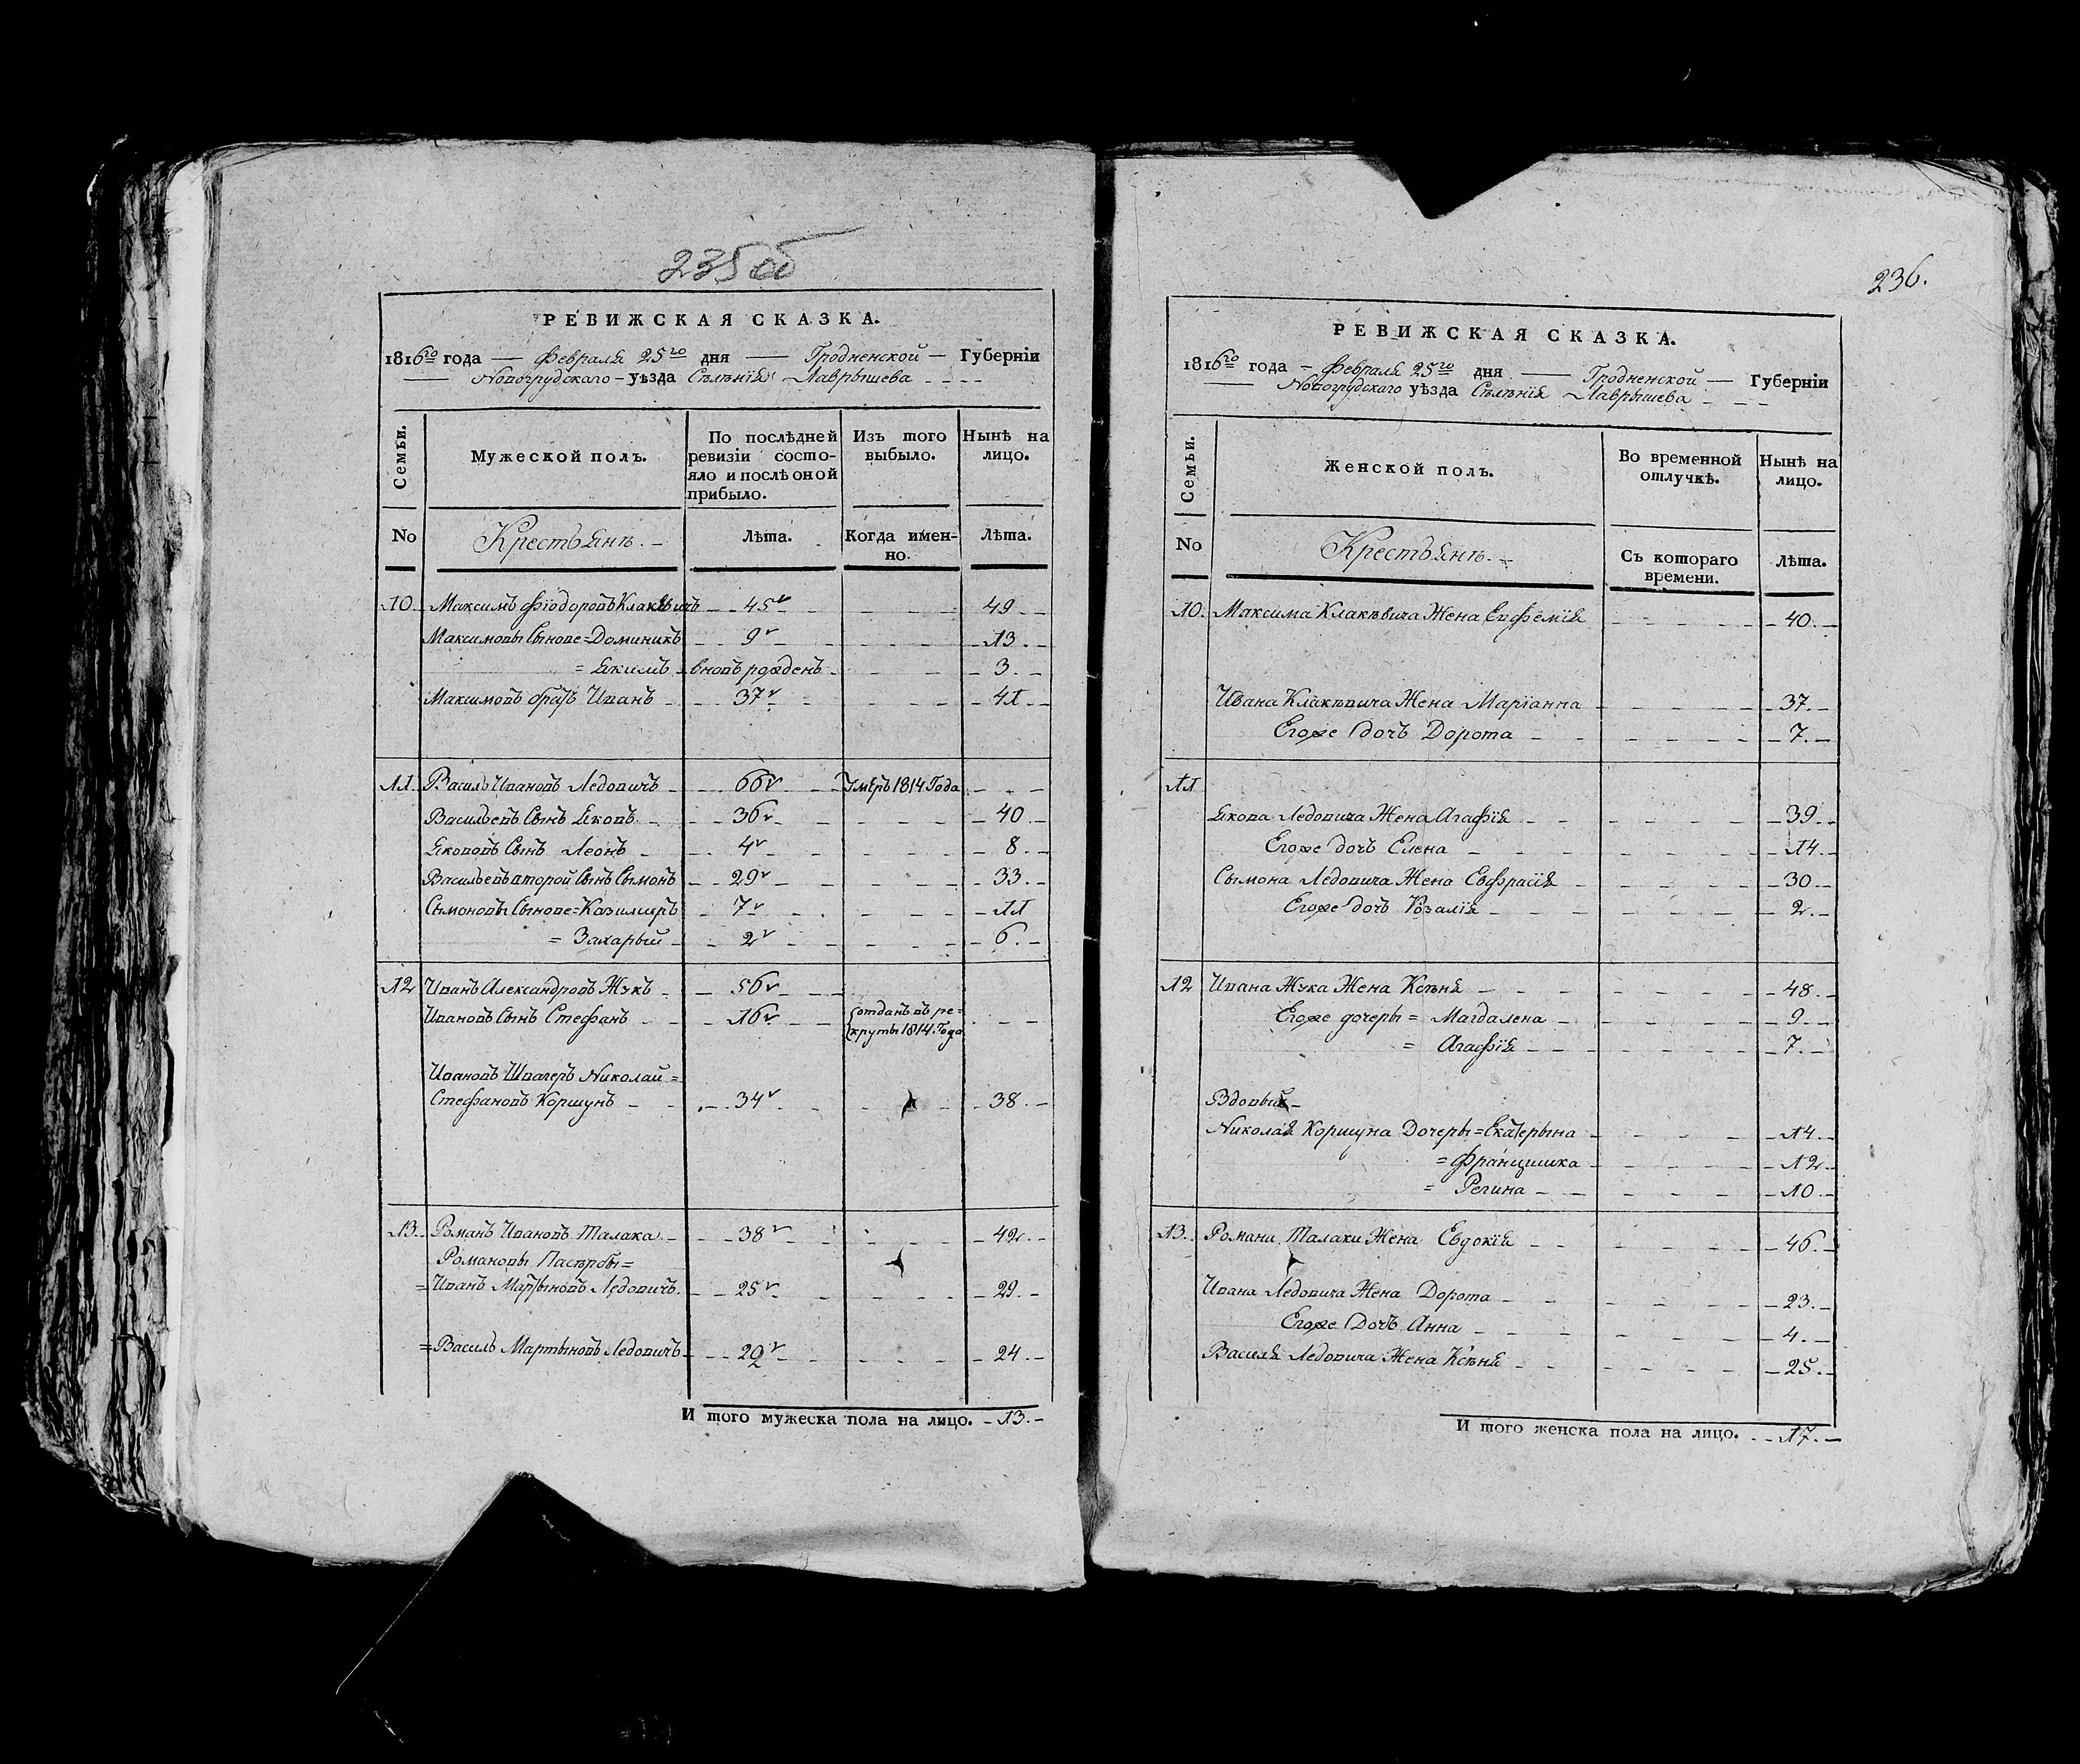 235 об
РЕВИЖСКАЯ СКАЗКА.
1816го года — Февраля 25го дня — Гродненской — Губерніи
— Новогрудскаго — уѣзда Сѣлѣнія Лаврышева - - - -
Семьи.
Мужеской полъ.
По послѣдней ревизіи состояло и послѣ оной прибыло.
Изъ того выбыло.
Нынѣ на лицо.
No
Крестьянъ. -
Лѣта.
Когда именно.
Лѣта.
10 Максимъ Фіодоровъ Клакѣвичъ - - 45 - - - - 49 - -
Максимовы Сынове = Доминикъ - 9 - - - - 13. -
= Якимъ - вновъ рожденъ - - - - 3. -
Максимовъ братъ Иванъ - - 37 - - - - 41. -
11. Василь Ивановъ Ледовичъ - - 66 - Умеръ 1814 Года - - -
Васильевъ Сынъ Яковъ. - - 36 - - - - 40. -
Якововъ Сынъ Леонъ - - 4 - - - - 8. -
Васильевъ второй Сынъ Сымонъ - 29 - - - - 33. -
Сымоновы Сынове = Казимеръ - 7 - - - - 11
= Захарый - - 2 - - - - 6. -
12 Иванъ Александровъ Жукъ - - 56 - - -
Ивановъ Сынъ Стефанъ - - 16 - - отданъ въ ре=
круты 1814. Года - - -
Ивановъ Швагеръ Николай =
Стефановъ Коршунъ - - 34 - - - 38. -
13. Романъ Ивановъ Талака - - 38 - - - 42. -
Романовы Пастрбы =
= Иванъ Мартыновъ Ледовичъ. - 25 - - - - 29. -
= Василь Мартыновъ Ледовичъ - - 20 - - - - 24. -
И того мужеска пола на лицо. - 13. -
236.
РЕВИЖСКАЯ СКАЗКА.
1816го года - Февраля 25го дня — Гродненской — Губерніи
— Новогрудскаго уѣзда Сѣлѣнія Лаврышева - - -
Семьи.
Женской полъ.
Во временной отлучкѣ.
Нынѣ на лицо.
No
Крестьянъ. -
Съ котораго времени.
Лѣта.
10. Максима Клакѣвича Жена Евфемія - - - - - 40. -
Ивана Клакѣвича Жена Маріанна - - - - - 37. -
Егоже дочъ Дорота - - - - - - 7. -
11
Якова Ледовича Жена Агафія - - - - - 39. -
Егоже дочъ Елена - - - - - - 14. -
Сымона Ледовича Жена Евфрасія - - - - - 30 -
Егоже дочъ Розалія - - - - - - 2. -
12 Ивана Жука Жена Ксѣня - - - - - - 48. -
Егоже дочеры = Магдалена - - - - - 9. -
= Агафія - - - - - - 7. -
Вдовый -
Николая Коршуна Дочеры = Екатерына - - - - - 14. -
= Францишка - - - - - 12 -
= Регина - - - - - - 10. -
13. Романа Талаки Жена Евдокія - - - - - 46. -
Ивана Ледовича Жена Дорота - - - - - 23. -
Егоже Дочъ Анна - - - - - - 4. -
Василя Ледовича Жена Ксѣня - - - - - 25. -
И того женска пола на лицо. - - 17. -